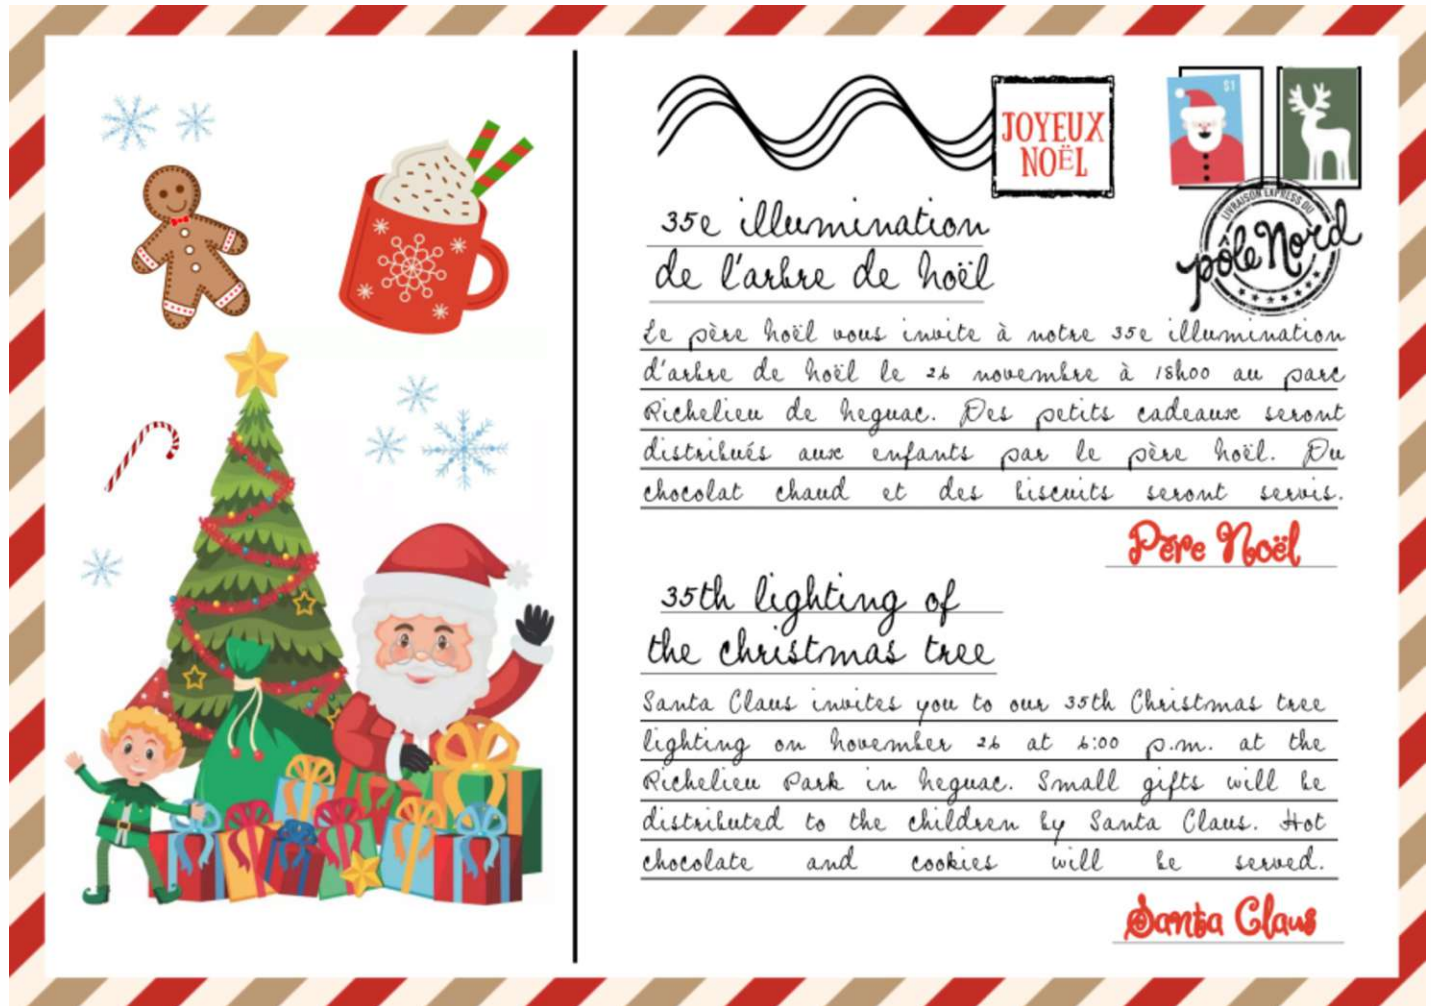 JOYEUX
NOËL
$1
LIVRAISON EXPRESS DU
pôle Nord
35e illumination
de l'arbre de Noël
Le père Noël vous invite à notre 35e illumination
d'arbre de Noël le 26 novembre à 18h00 au parc
Richelieu de Neguac. Des petits cadeaux seront
distribués aux enfants par le père Noël. Du
chocolat chaud et des biscuits seront servis.
Père Noël
35th lighting of
the christmas tree
Santa Claus invites you to our 35th Christmas tree
lighting on November 26 at 6:00 p.m. at the
Richelieu Park in Neguac. Small gifts will be
distributed to the children by Santa Claus. Hot
chocolate and cookies will be served.
Santa Claus